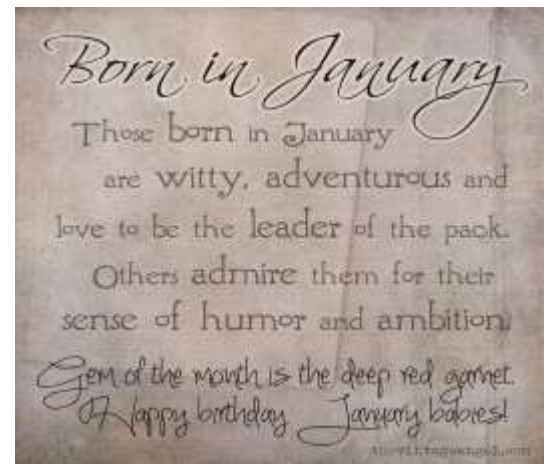 Born in January
Those born in January
are witty, adventurous and
love to be the leader of the pack.
Others admire them for their
sense of humor and ambition.
Gem of the month is the deep red garnet.
Happy birthday January babies!
thevintageangel.com